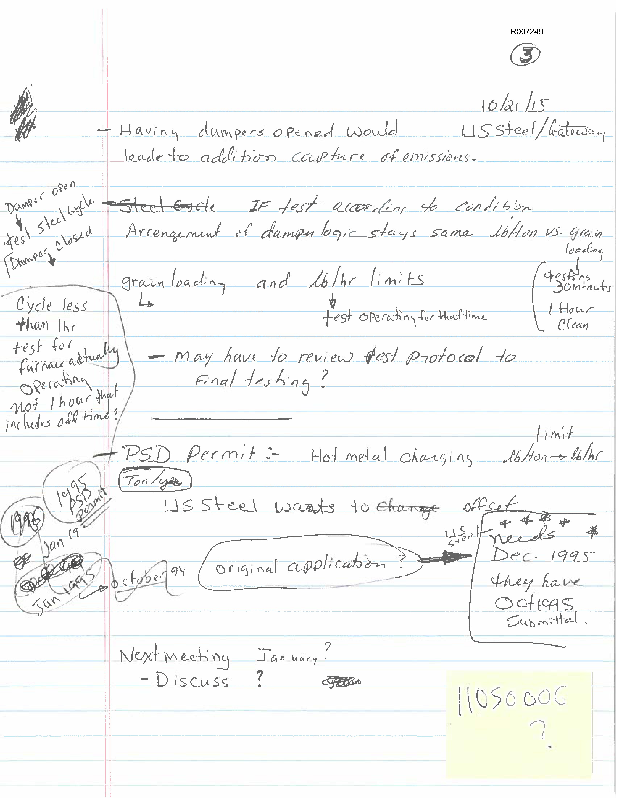 R007249
3
10/21/15
US Steel/Gateway
- Having dampers opened would
leade to addition capture of emissions.
Damper open
test Steel Cycle
Damper closed
- Steel Cycle IF test according to condition
Arrangement of damper logic stays same lb/ton vs. grain
loading
testing
30 minuts
1 Hour
Clean
grain loading and lb/hr limits
test operating for that time
Cycle less
than 1hr
test for
furnace actually
operating
not 1 hour that
includes off time?
- May have to review test protocol to
Final testing?
limit
- PSD Permit :- Hot metal charging lb/ton → lb/hr
Ton/year
US Steel wants to change offset
1995
PSD
Permit
1996
Jan 19
Jan 1995
October 94
original application?
US Steel
* * * * *
needs
Dec. 1995
they have
Oct 1995
Submittal.
Next meeting January?
- Discuss ?
?